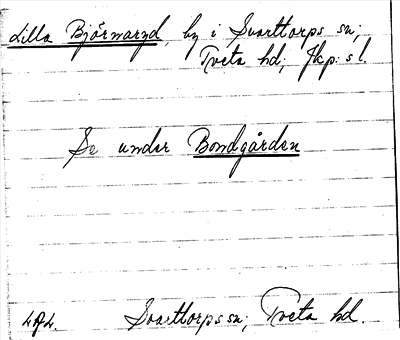 Lilla Björnaryd, by i Svarttorps sn,
Tveta hd, Jkp:s l.
Se under Bondgården
Svarttorps sn, Tveta hd.